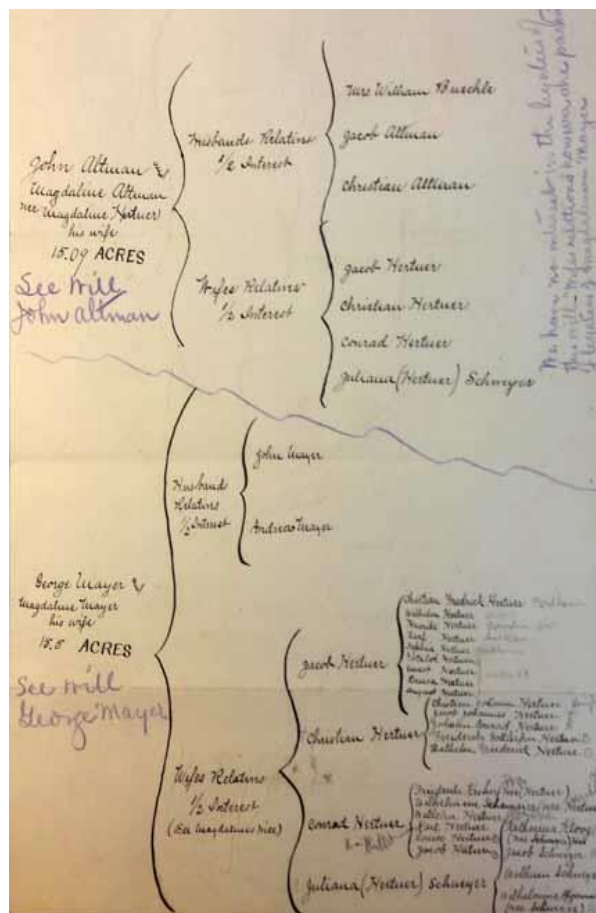 John Altman &
Magdaline Altman
nee Magdaline Hertner
his wife
15.09 ACRES
See Will
John Altman
Husbands Relatins
1/2 Interest
Mrs William Buechle
Jacob Altman
Christian Altman
Wifes Relatins
1/2 Interest
Jacob Hertner
Christian Hertner
Conrad Hertner
Juliana (Hertner) Schweyer
We have no interest in the
this will Wifes relations however are
of Magdaline Mayer
George Mayer &
Magdaline Mayer
his wife
15.5 ACRES
See Will
George Mayer
Husbands
Relatins
1/2 Interest
John Mayer
Andreas Mayer
Wifes Relatins
1/2 Interest
(See Magdalines Will)
Jacob Hertner
Christian Fredrich Hertner
Wilhelm Hertner
Hertner
Karl Hertner
Hertner
Hertner
Hertner
Hertner
August Hertner
Christian Hertner
Christian Johann Hertner
Jacob Johannes Hertner
Johann Conrad Hertner
Friedericke Hertner
Wilhelm Friederich Hertner
Conrad Hertner
Friedericke (nee Hertner)
Wilhelmine (nee Hertner
Hertner
Karl Hertner
Louise Hertner
Jacob Hertner
Juliana (Hertner) Schweyer
Katherina
(nee Schweyer)
Jacob Schweyer
William Schweyer
Wilhelmine
(nee Schweyer)